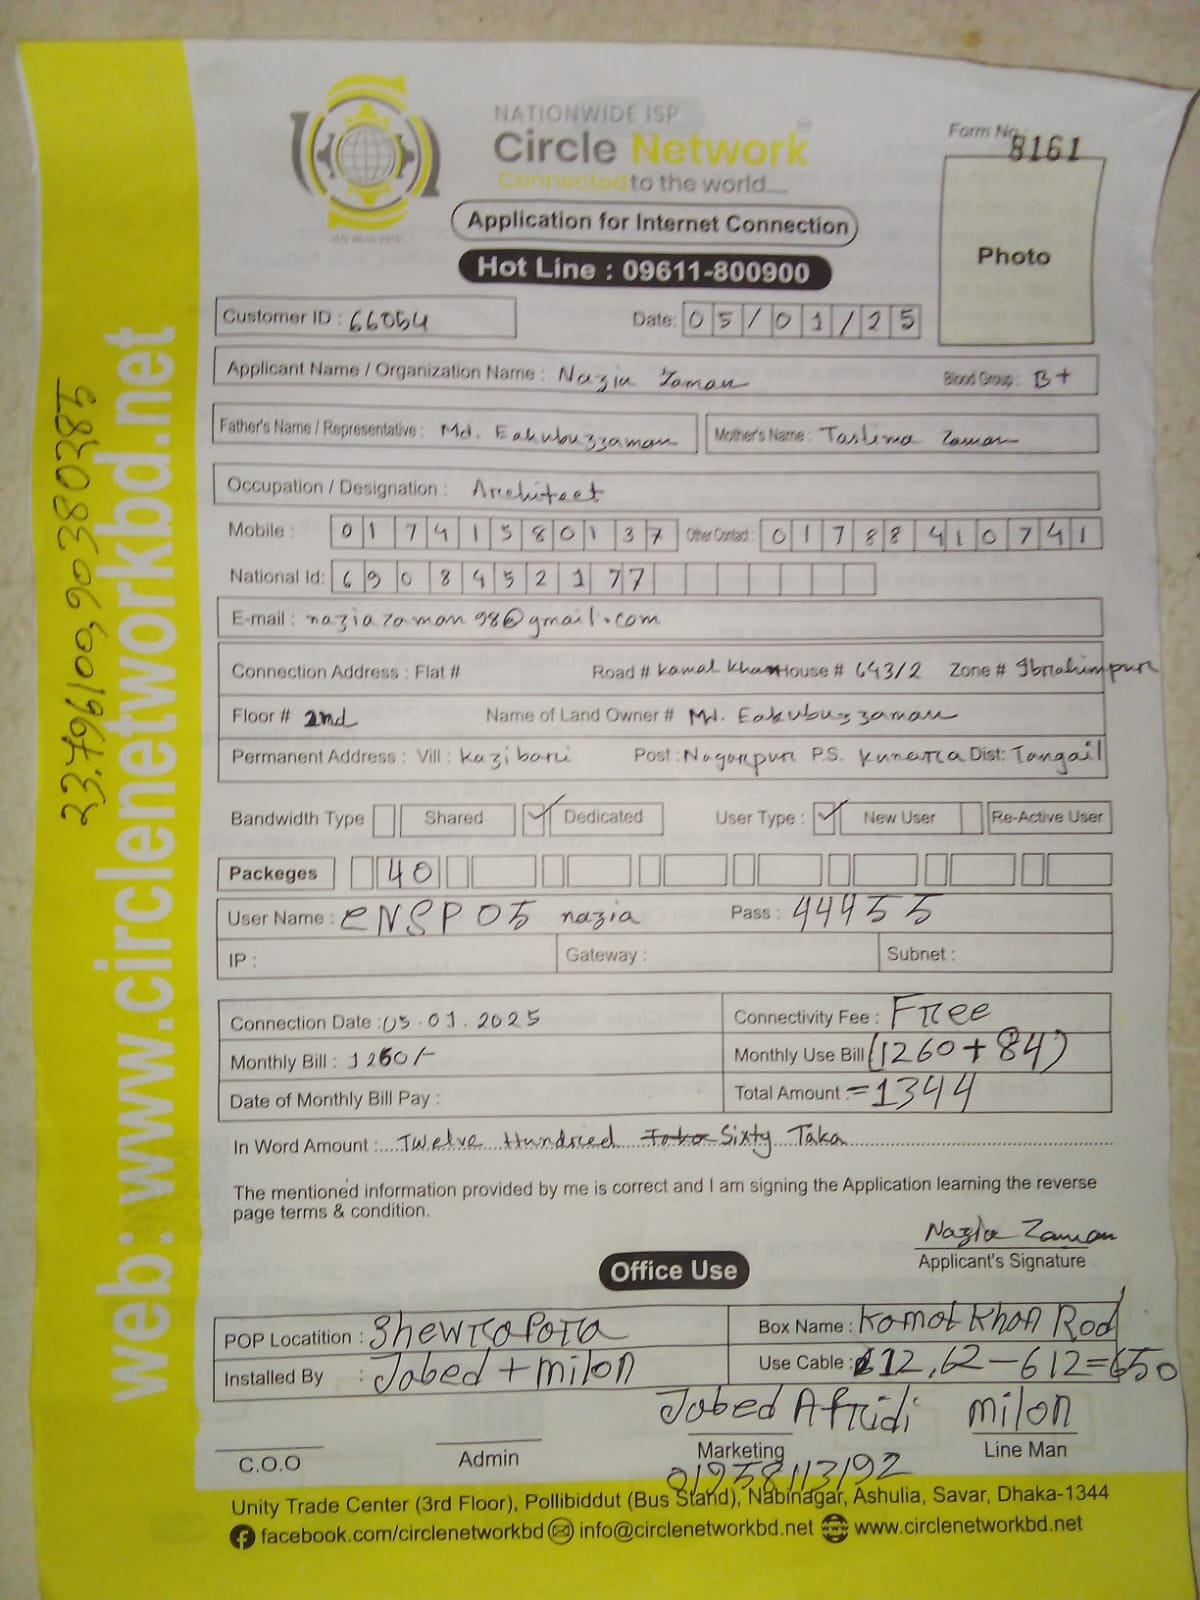 NATIONWIDE ISP
Circle Network
Connected to the world
Form No. 8161
Application for Internet Connection
Photo
Hot Line : 09611-800900
Customer ID : 66054 Date: 05/01/25
Applicant Name / Organization Name : Nazia Zaman Blood Group : B+
Father's Name / Representative : Md. Eakubuzzaman Mother's Name : Taslima Zaman
Occupation / Designation : Architect
Mobile : 01741580137 Other Contact : 01788410741
National Id: 6908452177
E-mail : naziazaman98@gmail.com
Connection Address : Flat # Road # Kamal Khan House # 643/2 Zone # Ibrahimpur
Floor # 2nd Name of Land Owner # Md. Eakubuzzaman
Permanent Address : Vill : Kazi bari Post : Nagarpur P.S. Dist: Tangail
Bandwidth Type Shared ✓ Dedicated User Type : ✓ New User Re-Active User
Packeges 40
User Name : ENSP05 nazia Pass : 44455
IP : Gateway : Subnet :
Connection Date : 05.01.2025 Connectivity Fee : Free
Monthly Bill : 1260/- Monthly Use Bill (1260+84)
Date of Monthly Bill Pay : Total Amount := 1344
In Word Amount : Twelve Hundred Sixty Taka
The mentioned information provided by me is correct and I am signing the Application learning the reverse
page terms & condition.
Nazia Zaman
Applicant's Signature
Office Use
POP Locatition : ShewraPara Box Name : Kamal Khan Rod
Installed By : Jabed + milon Use Cable : 12,62-612=650
Jabed Afridi milon
C.O.O Admin Marketing Line Man
01958113192
Unity Trade Center (3rd Floor), Pollibiddut (Bus Stand), Nabinagar, Ashulia, Savar, Dhaka-1344
facebook.com/circlenetworkbd info@circlenetworkbd.net www.circlenetworkbd.net
web: www.circlenetworkbd.net
23.796100,90.380385